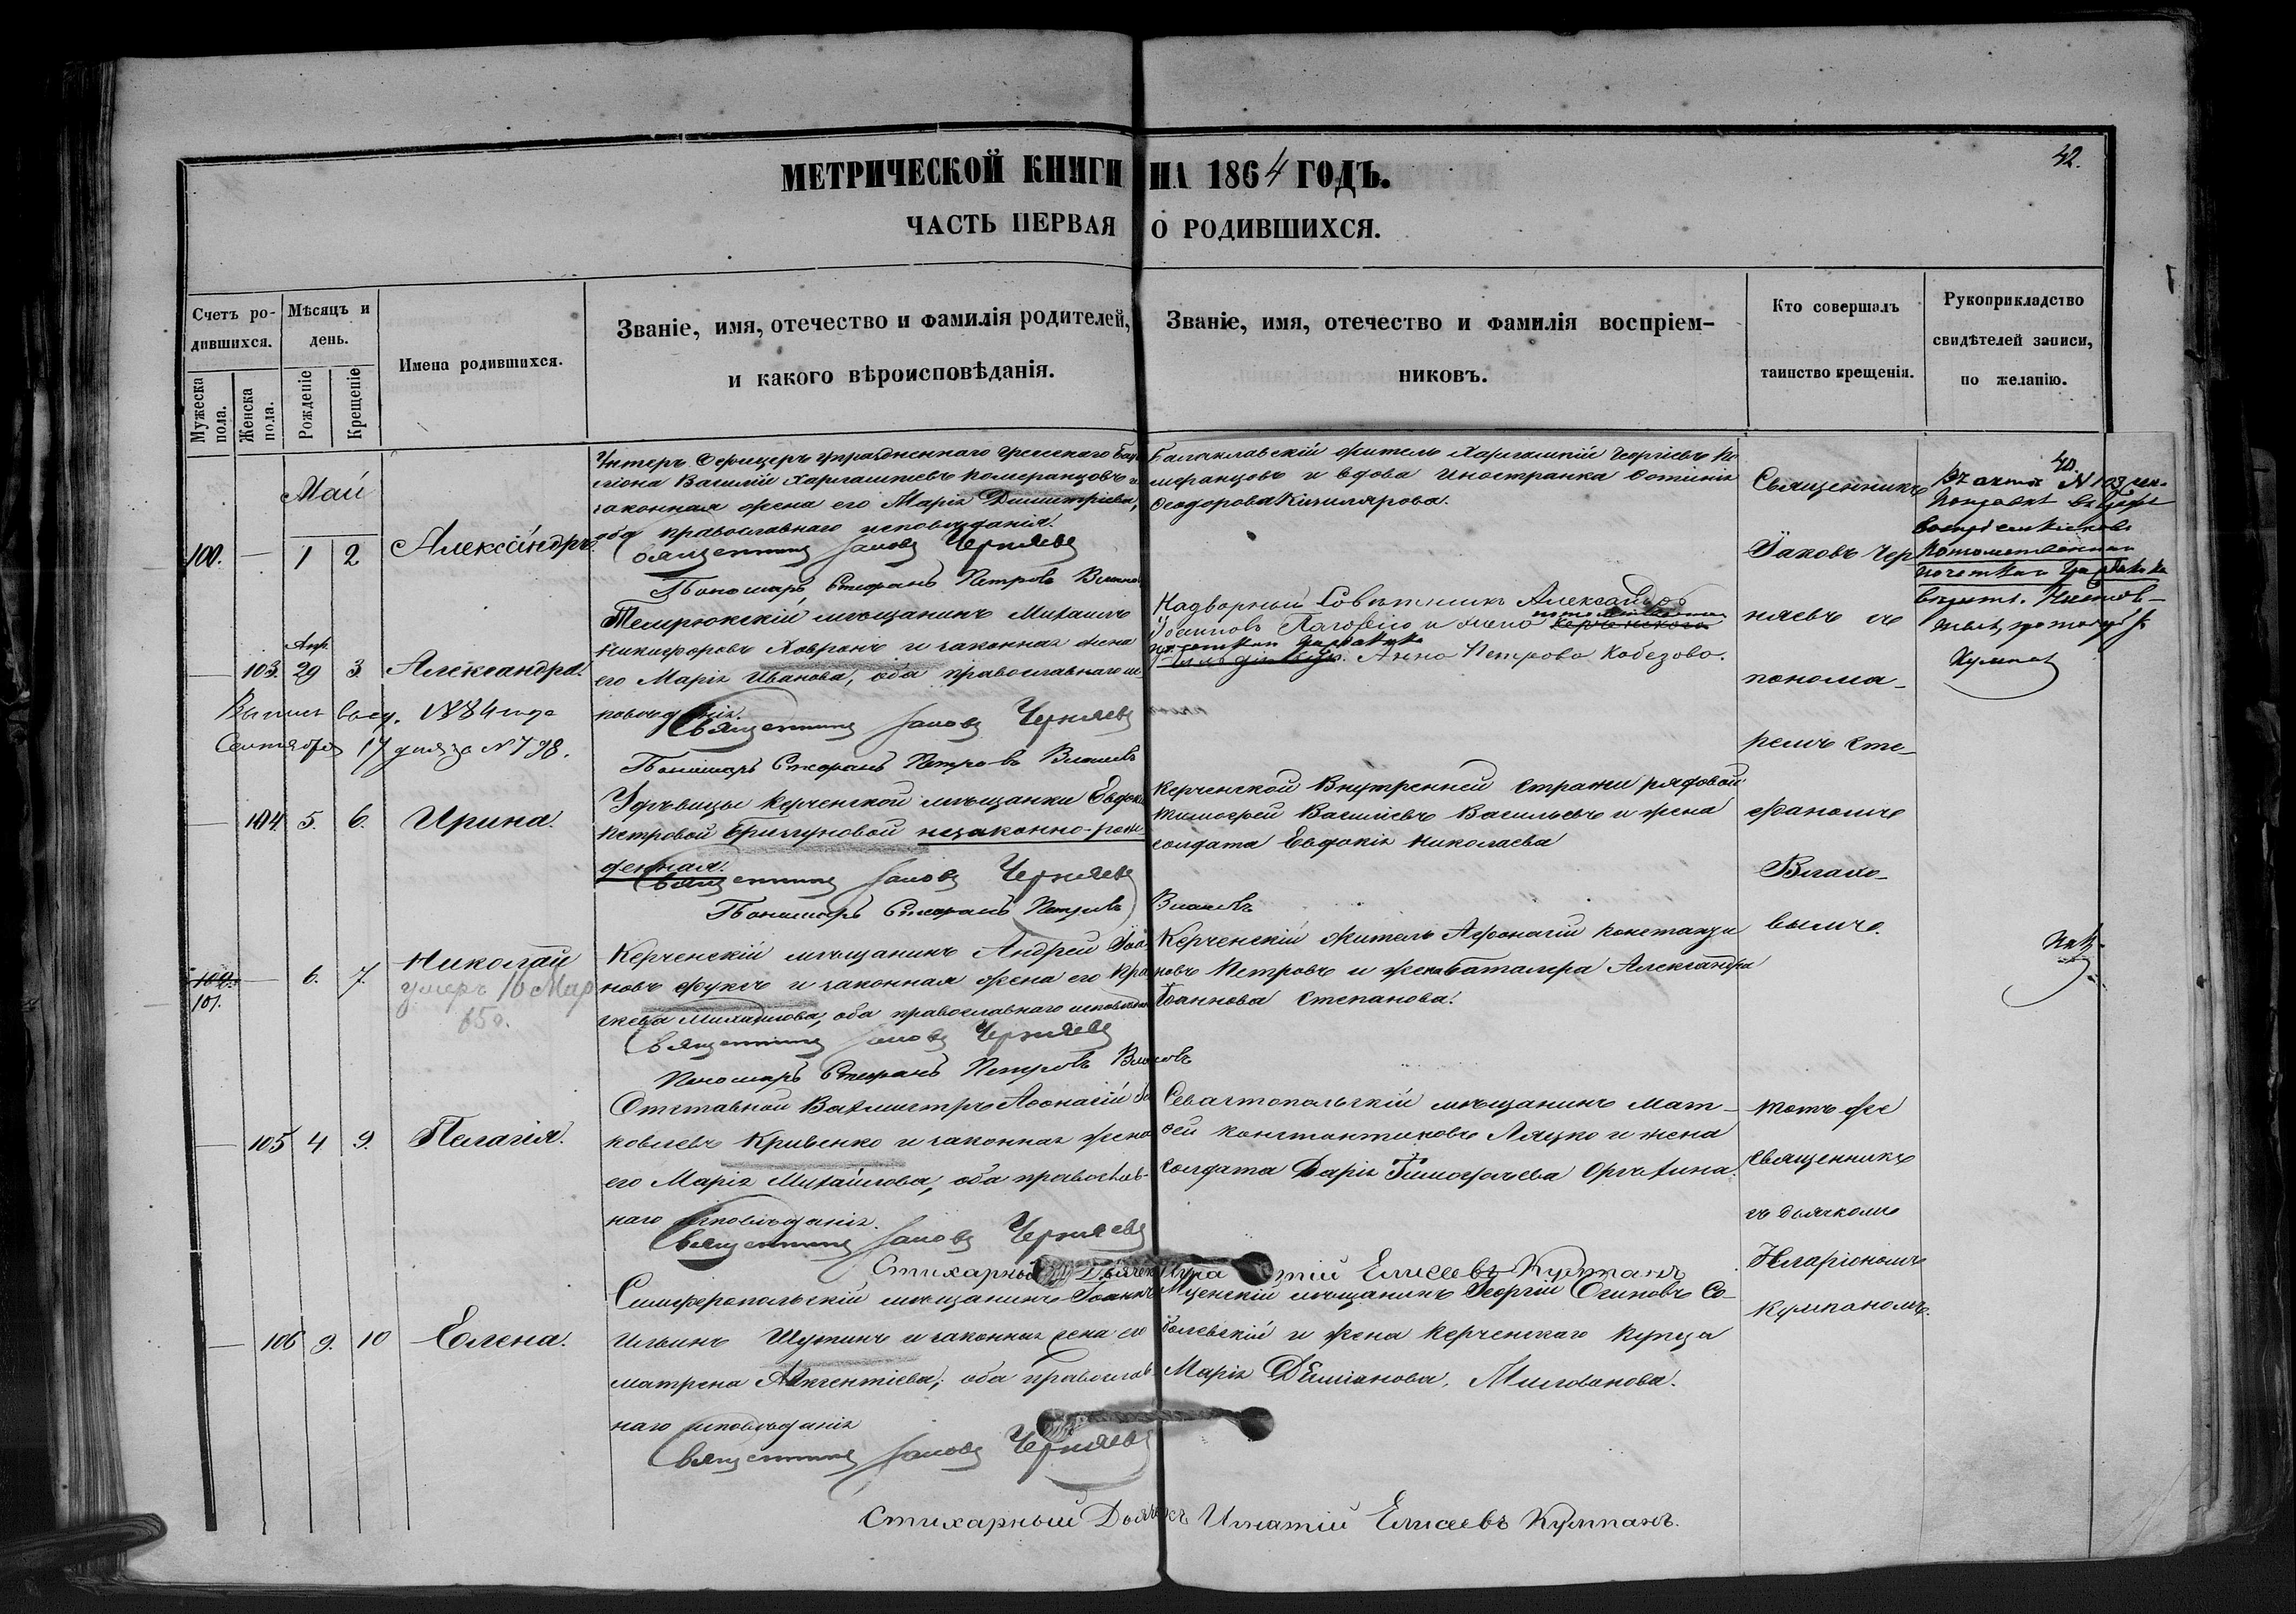 42.
МЕТРИЧЕСКОЙ КНИГИ НА 1864 ГОДЪ.
ЧАСТЬ ПЕРВАЯ О РОДИВШИХСЯ.
Счетъ ро-
дившихся.
Мужеска пола.
Женска пола.
Мѣсяцъ и
день.
Рожденіе
Крещеніе
Имена родившихся.
Званіе, имя, отечество и фамилія родителей,
и какого вѣроисповѣданія.
Званіе, имя, отечество и фамилія воспріем-
никовъ.
Кто совершалъ
таинство крещенія.
Рукоприкладство
свидѣтелей записи,
по желанію.
Май
100. — 1 2 Александръ.
Унтеръ Офицеръ упраздненнаго Греческаго Ба
Василій Харлампіевъ Померанцовъ и
законная жена его Марія Димитріева,
оба православнаго исповѣданія.
Священникъ Іаковъ Черняевъ
Пономарь Стефанъ Петровъ Власовъ
Балаклавскій житель Харлампій Георгіевъ По
меранцовъ и вдова иностранка
Феодорова Кизилярова.
Священникъ
Іаковъ Чер
няевъ съ
понома-
ремъ Сте-
фаномъ
Власо-
вымъ.
Апр.
— 103. 29 3. Александра.
Темрюкскій мѣщанинъ Михаилъ
Никифоровъ Ховронъ и законная жена
его Марія Иванова, оба православнаго ис
повѣданія.
Священникъ Іаковъ Черняевъ
Пономарь Стефанъ Петровъ Власовъ
Надворный Совѣтникъ Александръ
Іоанновъ и жена Керченскаго
Анна Петрова Кобезова.
1884 года
Сентября 17 дня за № 798.
— 104. 5. 6. Ирина.
Керченской мѣщанки Евдокіи
Петровой незаконно-рож
денная.
Священникъ Іаковъ Черняевъ
Пономарь Стефанъ Петровъ Власовъ
Керченской Внутренней стражи рядовой
Тимофей Василіевъ Васильевъ и жена
солдата Евдокія Николаева
101. — 6. 7. Николай
умеръ 16 Мар
65 г.
Керченскій мѣщанинъ Андрей Іоан
новъ Фуксъ и законная жена его
Михайлова, оба православнаго исповѣдан
Священникъ Іаковъ Черняевъ
Пономарь Стефанъ Петровъ Власовъ
Керченскій житель Афанасій Константи
новъ Петровъ и жена баталера Александра
Іоаннова Степанова.
— 105 4 9. Пелагія.
Отставной Вахмистръ Афонасій Яо
ковлевъ Кривенко и законная жена
его Марія Михайлова, оба православ-
наго исповѣданія.
Священникъ Іаковъ Черняевъ
Стихарный Дьячекъ Елисеевъ Кулпанъ
Севастопольскій мѣщанинъ Мат-
ѳей Константиновъ Ляцко и жена
солдата Дарія Тимофѣева
Тотъ же
священникъ
съ дьячкомъ
Иларіономъ
Кулпаномъ.
— 106 9. 10 Елена.
Симферопольскій мѣщанинъ Іоаннъ
Ильинъ Шутинъ и законная жена его
Матрена Авксентіева, оба православ
наго исповѣданія
Священникъ Іаковъ Черняевъ
Мценскій мѣщанинъ Георгій Осиповъ Со-
болевскій и жена Керченскаго купца
Марія Деміанова, Милованова.
Стихарный Дьячекъ Игнатій Елисеевъ Кулпанъ.